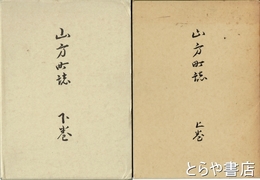 山方町誌
下巻
山方町誌
上巻
とらや書店